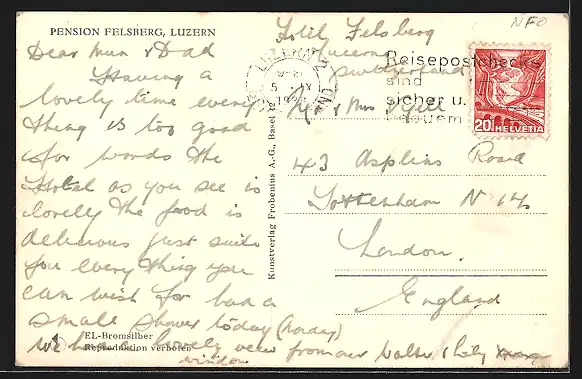 PENSION FELSBERG, LUZERN
Dear Mum & Dad
Having a
lovely time every
thing is too good
for words the
Hotel as you see is
lovely the food is
delicious just suits
you every thing you
can wish for had a
small shower today (Monday)
we had a lovely view from our
window
EL-Bromsilber
Reproduktion verboten
Konstverlag Frobenius A.-G., Basel
Hotel Felsberg
Lucerne
Switzerland
LUZERN
Reisepostchecks
sind
sicher u.
bequem
20 HELVETIA
Mr & Mrs
43 Asplins Road
Tottenham N 17
London.
England
NFO